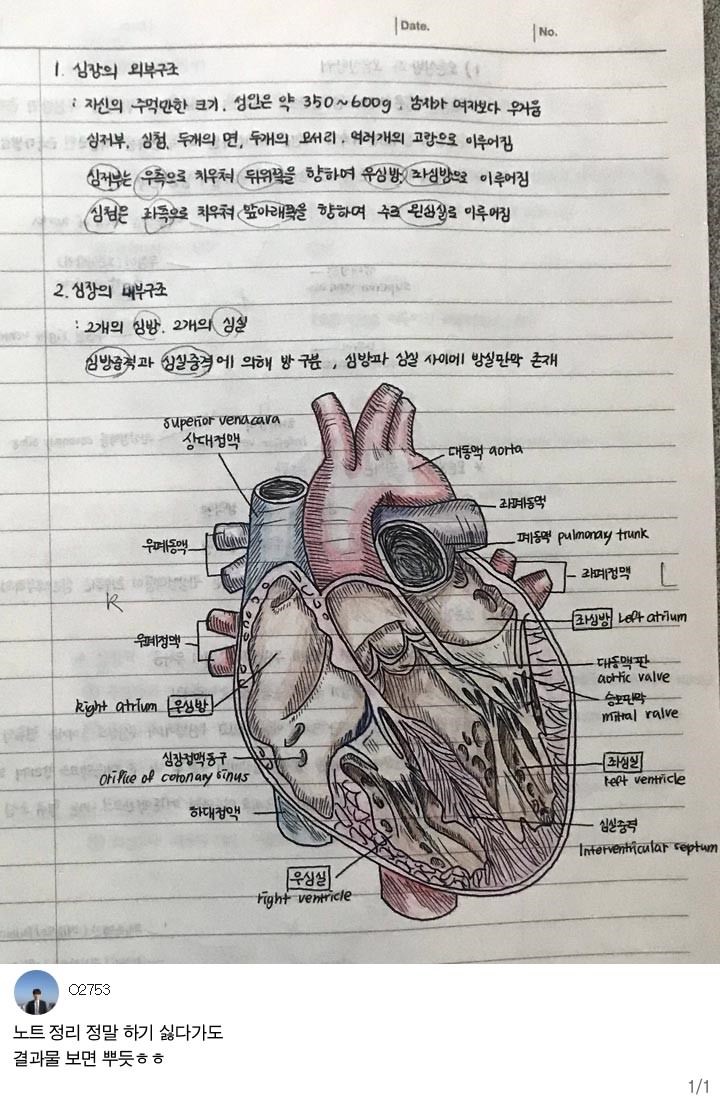 Date.
No.
1. 심장의 외부구조
: 자신의 주먹만한 크기. 성인은 약 350~600g. 남자가 여자보다 무거움
심저부, 심첨, 두개의 면, 두개의 모서리. 여러개의 고랑으로 이루어짐
심저부는 우측으로 치우쳐 뒤위쪽을 향하여 우심방, 좌심방으로 이루어짐
심첨은 좌측으로 치우쳐 앞아래쪽을 향하여 주로 왼심실로 이루어짐
2. 심장의 내부구조
: 2개의 심방. 2개의 심실
심방중격과 심실중격에 의해 방 구분, 심방과 심실 사이에 방실판막 존재
superior venacava
상대정맥
대동맥 aorta
좌폐동맥
우폐동맥
폐동맥 pulmonary trunk
좌폐정맥
L
R
좌심방 Left atrium
우폐정맥
대동맥판
aortic valve
승모판막
mitral valve
Right atrium 우심방
심장정맥동구
orifice of coronary sinus
좌심실
left ventricle
하대정맥
심실중격
Interventricular septum
우심실
right ventricle
02753
노트 정리 정말 하기 싫다가도
결과물 보면 뿌듯ㅎㅎ
1/1